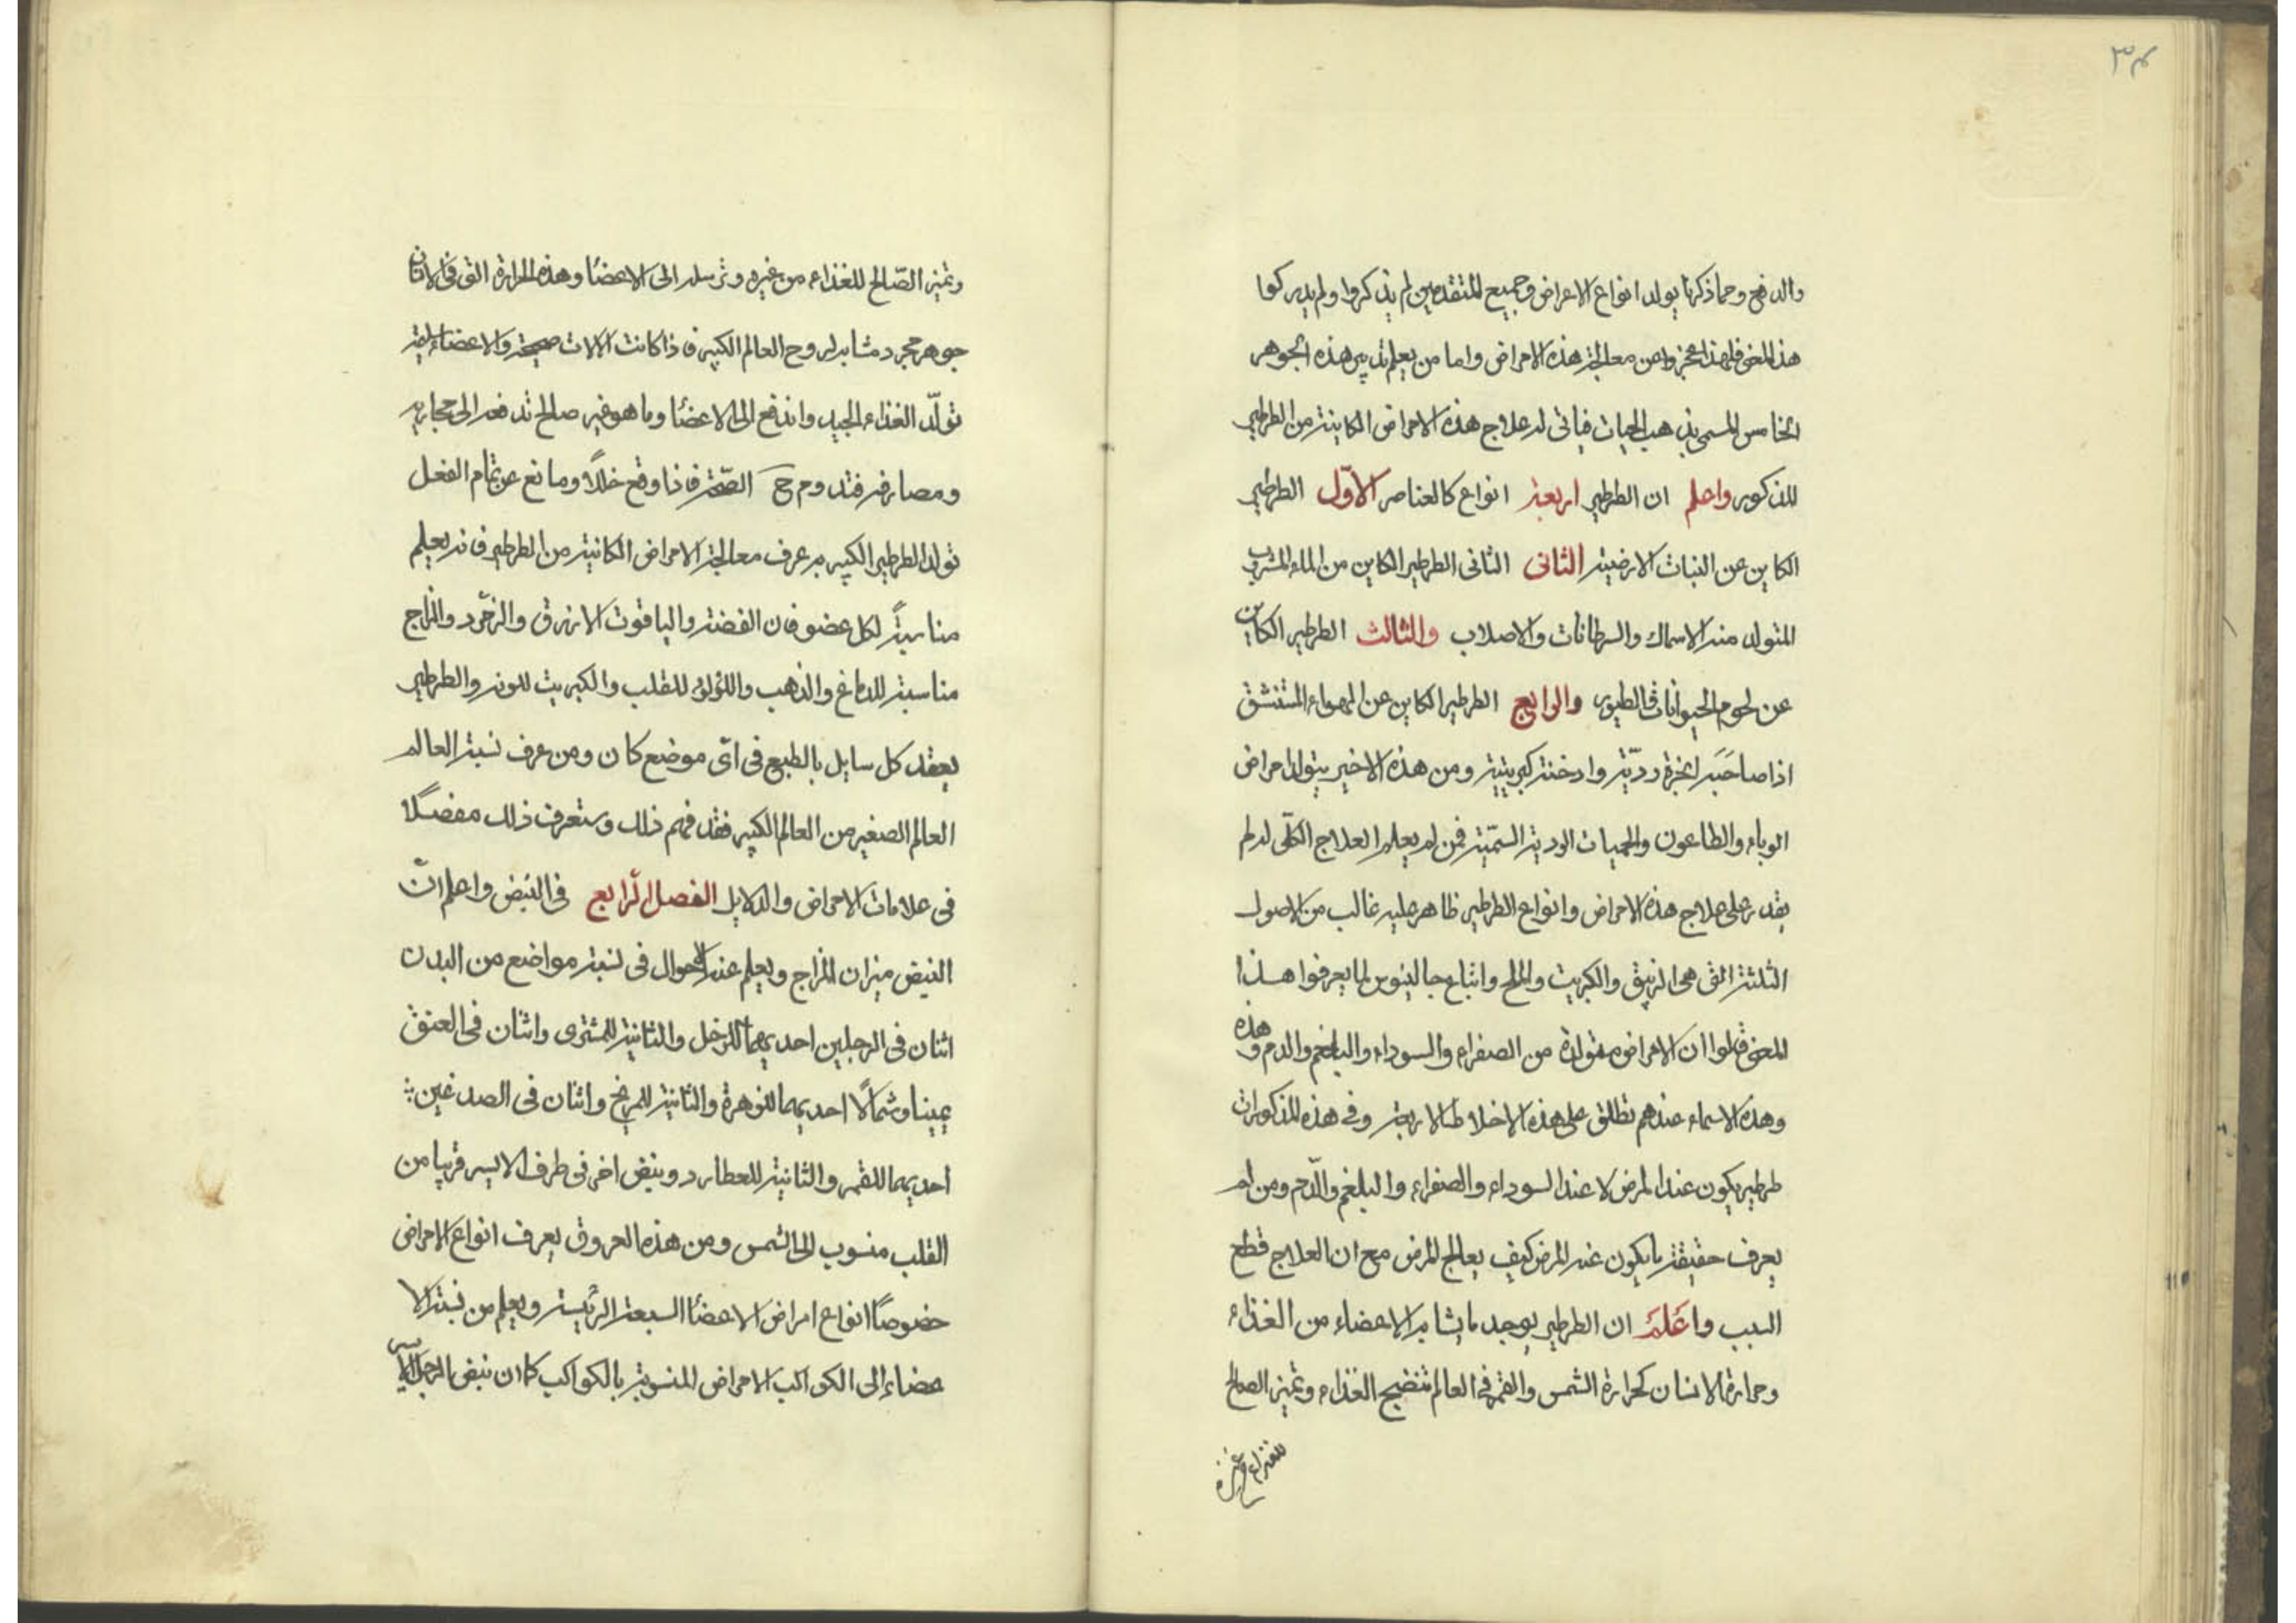 ٣٤
والدفع ومما ذكرنا يولد انواع الاعراض وجميع المتقدمين لم يذكروا ولم يدركوا
هذا المعنى فلهذا عجزوا من معالجة هذه الامراض واما من يعلم تدبير هذه الجوهر
الخامس المسمى بذهب الحيات فياتى له علاج هذه الامراض الكاينة من الطرطير
المذكور واعلم ان الطرطير اربعة انواع كالعناصر الاوّل الطرطير
الكاين عن النبات الارضية الثانى الثانى الطرطير الكاين من الماء المشرب
المتولد منه الاسماك والسرطانات والاصلاب والثالث الطرطير الكاين
عن لحوم الحيوانات والطيور والرابع الطرطير الكاين عن الهواء المستنشق
اذا صاحبه ابخرة رديّة وادخنة كبريتية ومن هذه الاخير يتولد امراض
الوباء والطاعون والحميات الردية السمّية فمن لم يعلم العلاج الكلّى له لم
يقدر على علاج هذه الامراض وانواع الطرطير ظاهر عليه غالب من الاصول
الثلثة التى هى الزيبق والكبريت والملح واتباع جالينوس لما يعرفوا هذا
المعنى قالوا ان الامراض متولدة من الصفراء والسوداء والبلغم والدم وهذه
وهذه الاسماء عندهم تطلق على هذه الاخلاط الاربعة وفى هذه المذكورات
طرطير يكون عند المرض لا عند السوداء والصفراء والبلغم والدّم ومن لم
يعرف حقيقة ما يكون عنه المرض كيف يعالج المرض مع ان العلاج قطع
السبب واعلم ان الطرطير يوجد ما يشابه الاعضاء من الغذاء
وحرارة الانسان كحرارة الشمس والقمر فى العالم تنضج الغذاء وتميز الصالح
وتميز الصّالح للغذاء من غيره وترسله الى الاعضا وهذه الحرارة التى فى الانسان
جوهر مجرد مشابه لروح العالم الكبير فاذا كانت الالات صحيحة والاعضاء نقية
تولّد الغذاء الجيد واندفع الى الاعضا وما هو غير صالح تدفعه الى مجاريه
ومصارفه فتدوم ح الصّحة فاذا وقع خللًا ومانع عن تمام الفعل
تولد الطرطير الكبير به عرف معالجة الامراض الكاينة من الطرطير فانه يعلم
مناسبةً لكل عضو فان الفضة والياقوت الازرق والزمّرد والزاج
مناسبة للدماغ والذهب واللؤلؤ للقلب والكبريت للونه والطرطير
يعقد كل سايل بالطبع فى اىّ موضع كان ومن عرف نسبة العالم
العالم الصغير من العالم الكبير فقد فهم ذلك وستعرف ذلك مفصلًا
فى علامات الامراض والدلايل الفصل الرّابع فى النبض واعلم انّ
النبض ميزان المزاج ويعلم عنه الاحوال فى نسبة مواضع من البدن
اثنان فى الرجلين احديهما للزحل والثانية للمشترى واثنان فى العنق
يمينا وشمالًا احديهما للزهرة والثانية للمريخ واثنان فى الصدغين
احديهما للقمر والثانية للعطارد ونبض اخر فى طرف الايسر قريبا من
القلب منسوب الى الشمس ومن هذه العروق يعرف انواع الامراض
خصوصًا انواع امراض الاعضا السبعة الرئيسة ويعلم من نسبة الا
عضاء الى الكواكب الامراض المنسوبة بالكواكب كما ان نبض الرجل الايسر